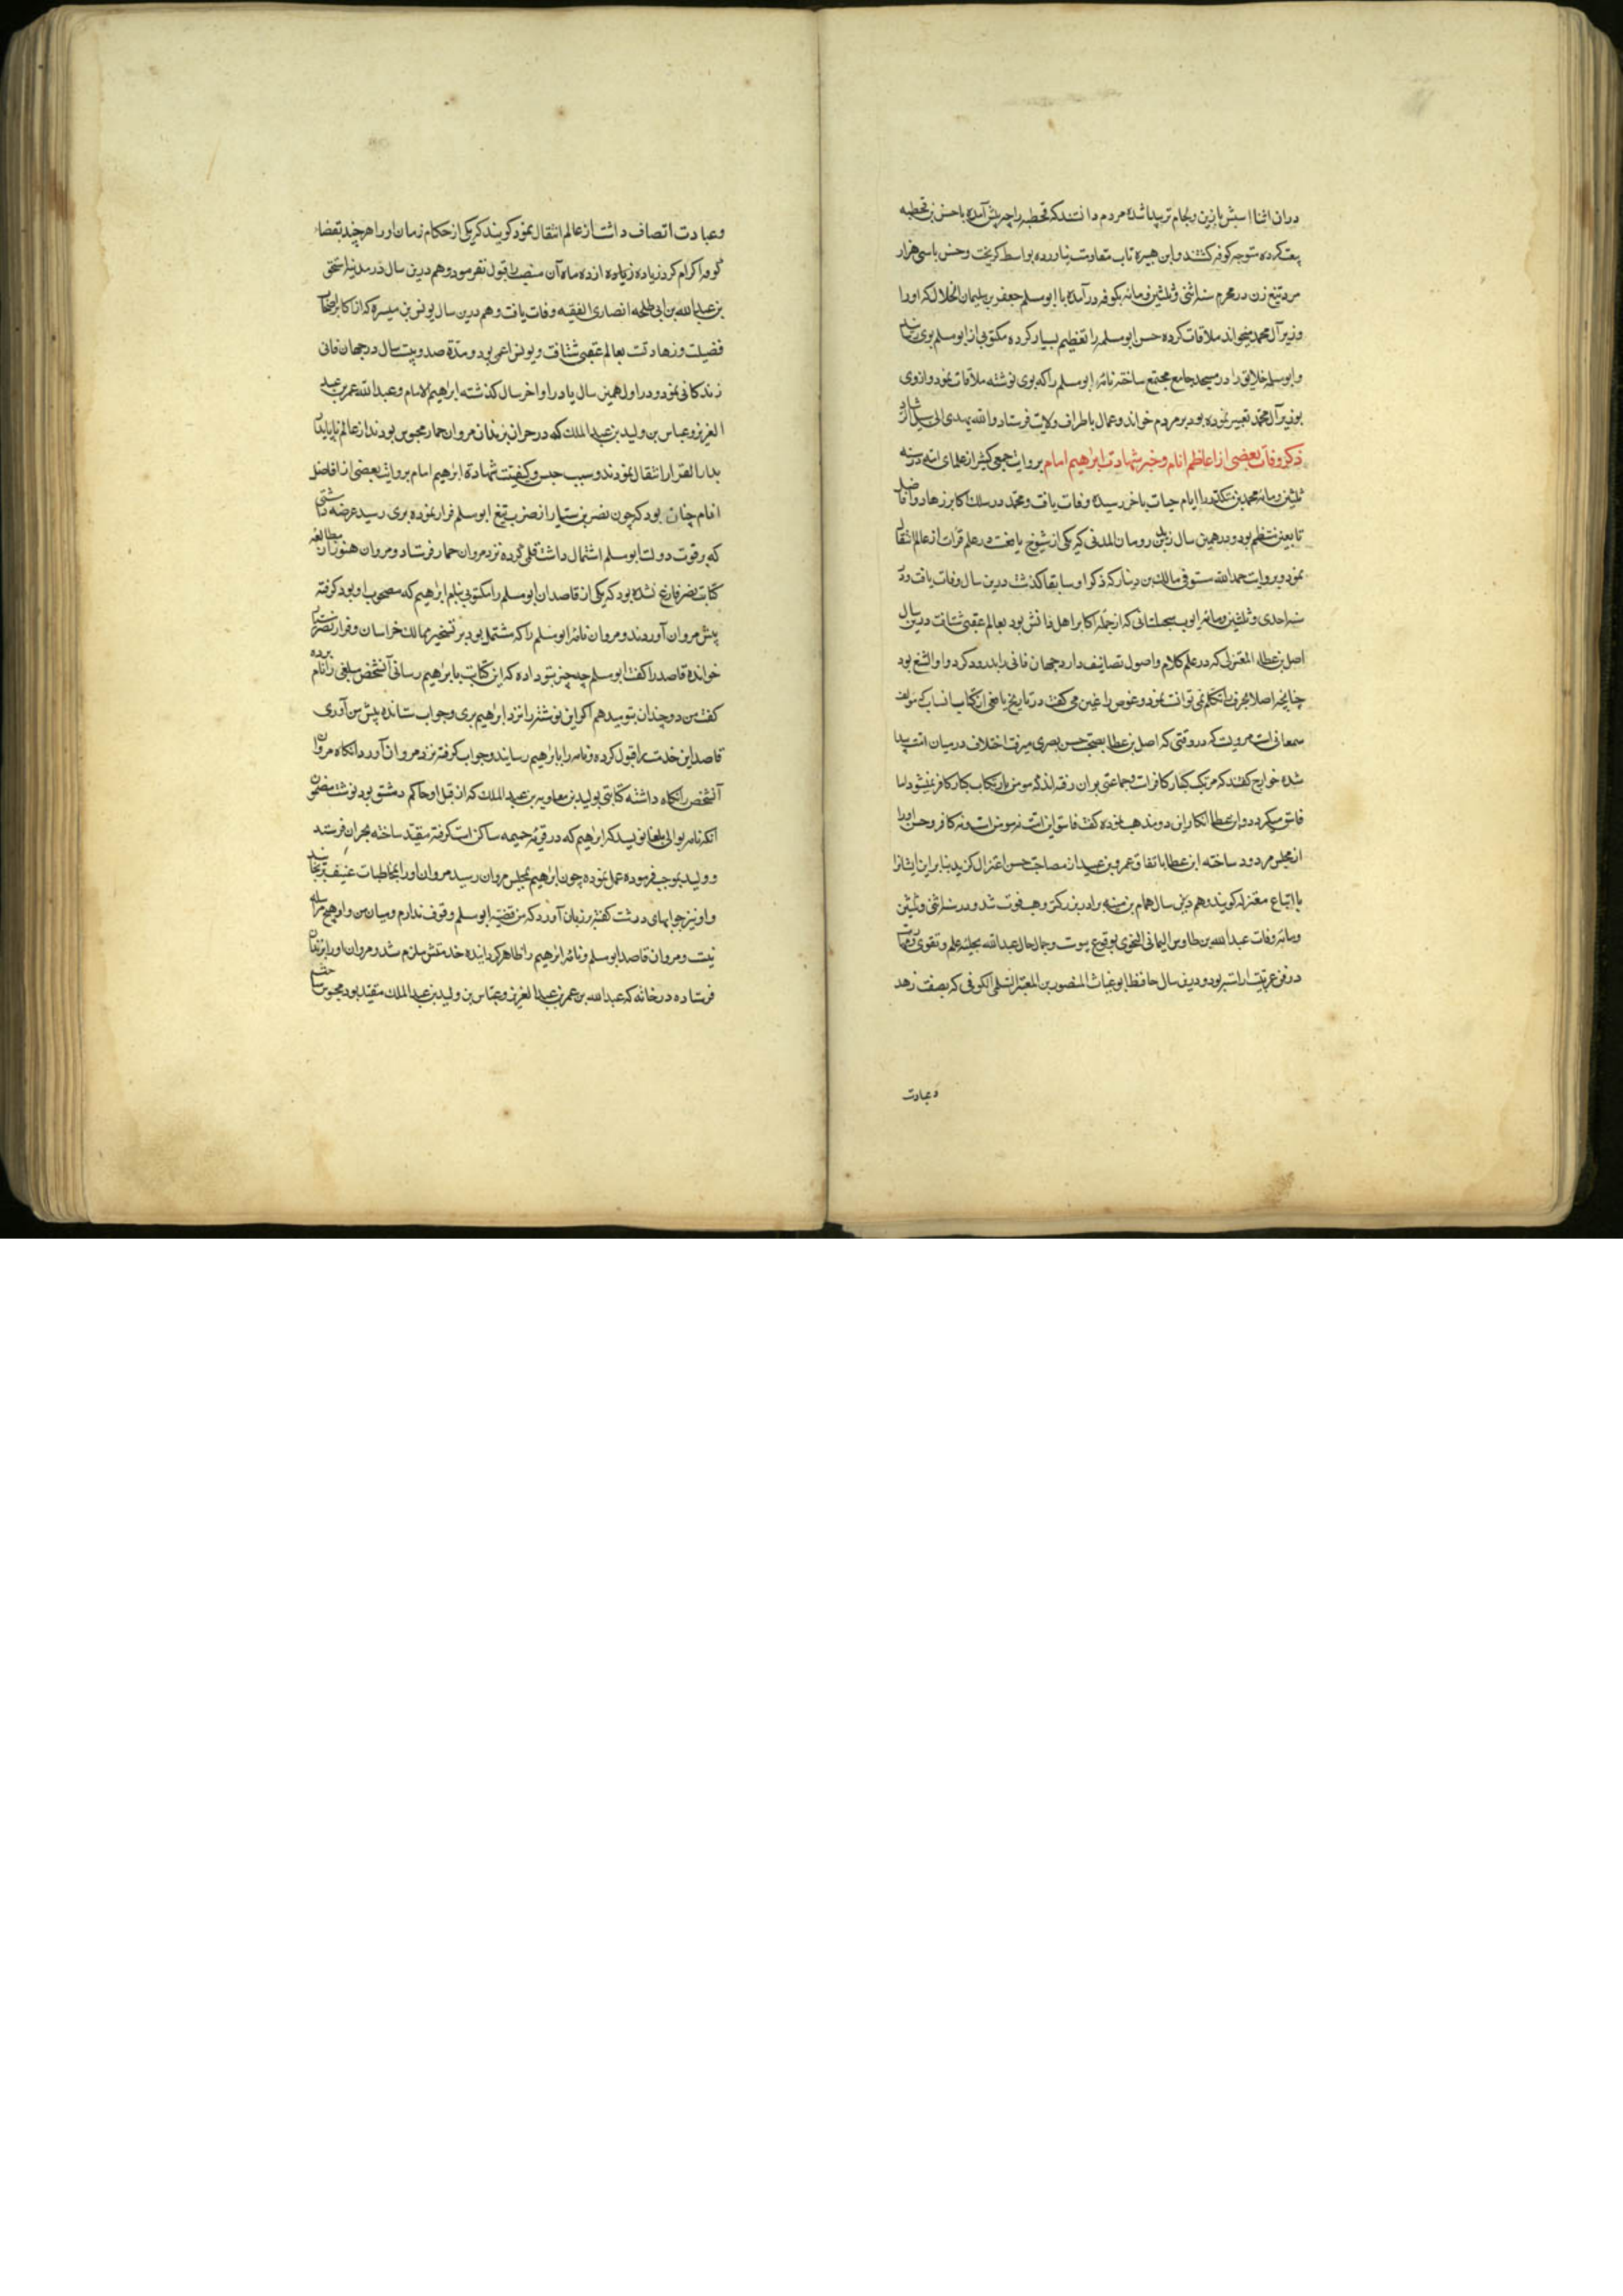 دران اثنا اسبش بازین ولجام تر پیدا شده مردم دانستند که قحطبه را چه پیش آمده با حسن بن قحطبه
بیعت کرده متوجه کوفه کشتند وابن هبیره تاب مقاومت نیاورده بواسط کریخت وحسن باسی هزار
مرد تیغ زن در محرم سنه اثنی وثلثین ومائه بکوفه درآمده با ابوسلمه جعفر بن سلیمان الخلال که اورا
وزیر آل محمد میخواند ملاقات کرده حسن ابوسلمه را تعظیم بسیار کرده مکتوبی از ابومسلم بوی رسانید
وابوسلمه خلایق را در مسجد جامع مجتمع ساخته نامه ابومسلم را که بوی نوشته ملاقات نمود وازوی
بوزیر آل محمد تعبیر نموده بود بر مردم خواند وعمال باطراف ولایت فرستاد والله یهدی الی سبیل الرشاد
ذکر وفات بعضی از اعاظم انام وخبر شهادت ابراهیم امام بروایت جمعی کثیر از علمای امه در سنه
ثلثین ومائه محمد بن منکدر را ایام حیات باخر رسیده وفات یافت ومحمد در سلک اکابر زهاد وافاضل
تابعین منتظم بود ودر همین سال یزید بن رومان المدنی که یکی از شیوخ نافعست در علم قرات از عالم انتقال
نمود وبروایت حمدالله مستوفی مالک بن دینار که ذکر او سابقا کذشت درین سال وفات یافت ودر
سنه احدی وثلثین ومائه ایوب سجستانی که از جمله اکابر اهل دانش بود بعالم عقبی شتافت ودرین سال
اصل بن عطاء المعتزلی که در علم کلام واصول تصانیف دارد جهان فانی را بدرود کرد واو الثغ بود
چنانچه اصلا بحرف را تکلم نمی توانست نمود وعوض را غین می کفت در تاریخ یافعی از کتاب انساب که مولف
سمعانی است مرویست که در وقتی که اصل بن عطا بصحبت حسن بصری میرفت اختلاف درمیان امت پیدا
شده خوارج کفتند که مرتکب کبایر کافر است وجماعتی بران رفته اند که مومن بارتکاب کبایر کافر نمیشود اما
فاسق میکردد وابن عطا انکار این دو مذهب نموده کفت فاسق این امت نه مومن است ونه کافر وحسن اورا
از مجلس مردود ساخته ابن عطا باتفاق عمرو بن عبید از مصاحبت حسن اعتزال کزید بنابراین ایشانرا
با اتباع معتزله کویند وهم درین سال همام بن منبه برادر بزرکتر وهب فوت شد ودر سنه اثنی وثلثین
ومائه وفات عبدالله بن طاوس الیمانی النحوی بوقوع پیوست وجمال حال عبدالله بحلیه علم وتقوی
در فن عربیت آراسته بود ودرین سال حافظ ابوغیاث المنصور بن المعتمر السلمی الکوفی که بصفت زهد
وعبادت
وعبادت اتصاف داشت از عالم انتقال نمود کویند که یکی از حکام زمان اورا هر چند بقضاء
کوفه اکرام کرد زیاده از دو ماه آن منصب را قبول نفرمود وهم درین سال در مدینه اسحق
بن عبدالله بن ابی طلحه انصاری الفقیه وفات یافت وهم درین سال یونس بن میسره که از اکابر اصحاب
فضیلت وزهادتست بعالم عقبی شتافت ویونس اعمی بود ومدة صد وبیست سال در جهان فانی
زندکانی نمود ودر اول همین سال یا در اواخر سال کذشته ابراهیم الامام وعبدالله عمر بن عبد
العزیز وعباس بن ولید بن عبدالملک که در حران بزندان مروان حمار محبوس بودند از عالم ناپایدار
بدار القرار انتقال نمودند وسبب حبس وکیفیت شهادة ابراهیم امام بروایت بعضی از افاضل
انام چنان بود که چون نصر بن سیار از ضرب تیغ ابومسلم فرار نموده بری رسید عرضه داشتی
که برقوت دولت ابومسلم اشتمال داشت قلمی کرده نزد مروان حمار فرستاد ومروان هنوز از مطالعه
کتابت نصر فارغ نشده بود که یکی از قاصدان ابومسلم را مکتوبی بنام ابراهیم که مصحوب او بود کرفته
پیش مروان آوردند ومروان نامه ابومسلم را که مشتمل بود بر تسخیر ممالک خراسان وفرار نصر بن سیار
خوانده قاصد را کفت ابومسلم چه چیز بتو داده که این کتابت بابراهیم رسانی آنشخص مبلغی را نام برده
کفت من دو چندان بتو میدهم اکر این نوشته را نزد ابراهیم بری وجواب ستانده پیش من آوری
قاصد این خدمت را قبول کرده ونامه را بابراهیم رسانید وجواب کرفته نزد مروان آورد آنکاه مروان
آنشخص را نکاه داشته کتابتی بولید بن معاویه بن عبدالملک که از قبل او حاکم دمشق بود نوشت مضمون
آنکه نامه بوالی بلقا نویسد که ابراهیم که در قریه حمیمه ساکن است کرفته مقید ساخته بحران فرستد
وولید بموجب فرموده عمل نموده چون ابراهیم بمجلس مروان رسید مروان اورا بمخاطبات عنیف برنجانید
واو نیز جوابهای درشت کفته بر زبان آورد که من قضیه ابومسلم وقوف ندارم ومیان من واو هیچ مراسله
نیست ومروان قاصد ابومسلم ونامه ابراهیم را ظاهر کردانیده خدمتش ملزم شد ومروان اورا بزندان
فرستاده در خانه که عبدالله بن عمر بن عبدالعزیز وعباس بن ولید بن عبدالملک مقید بود محبوس ساخت